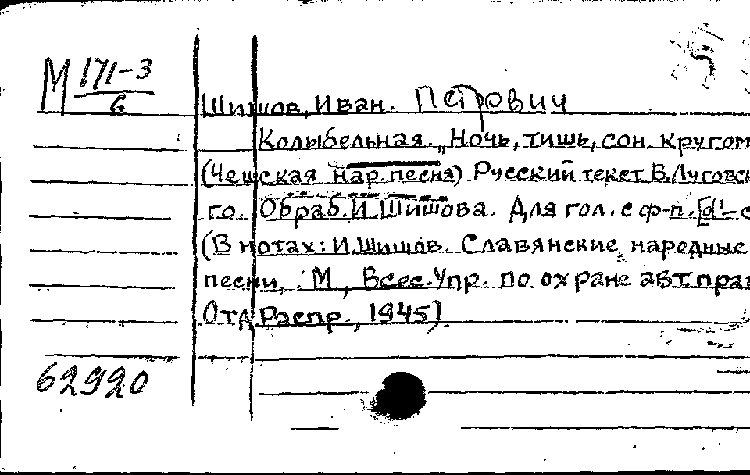 М 171-3
6
Шишов, Иван. Петрович
Колыбельная. „Ночь, тишь, сон кругом
(Чешская нар. песня) Русский текст В. Луговск
го. Обраб. И. Шишова. Для гол. с ф-п. [d¹-
(В нотах: И. Шишов. Славянские народные
песни, М., Всес. Упр. по охране авт. прав
Отд. Распр., 1945).
62920